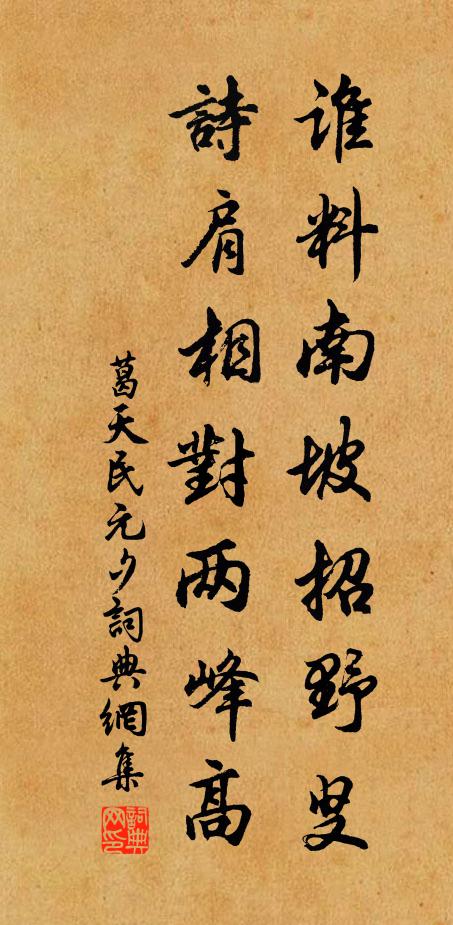 谁料南坡招野叟
詩肩相對两峰高
葛天民元夕詞典網集
詞典网印